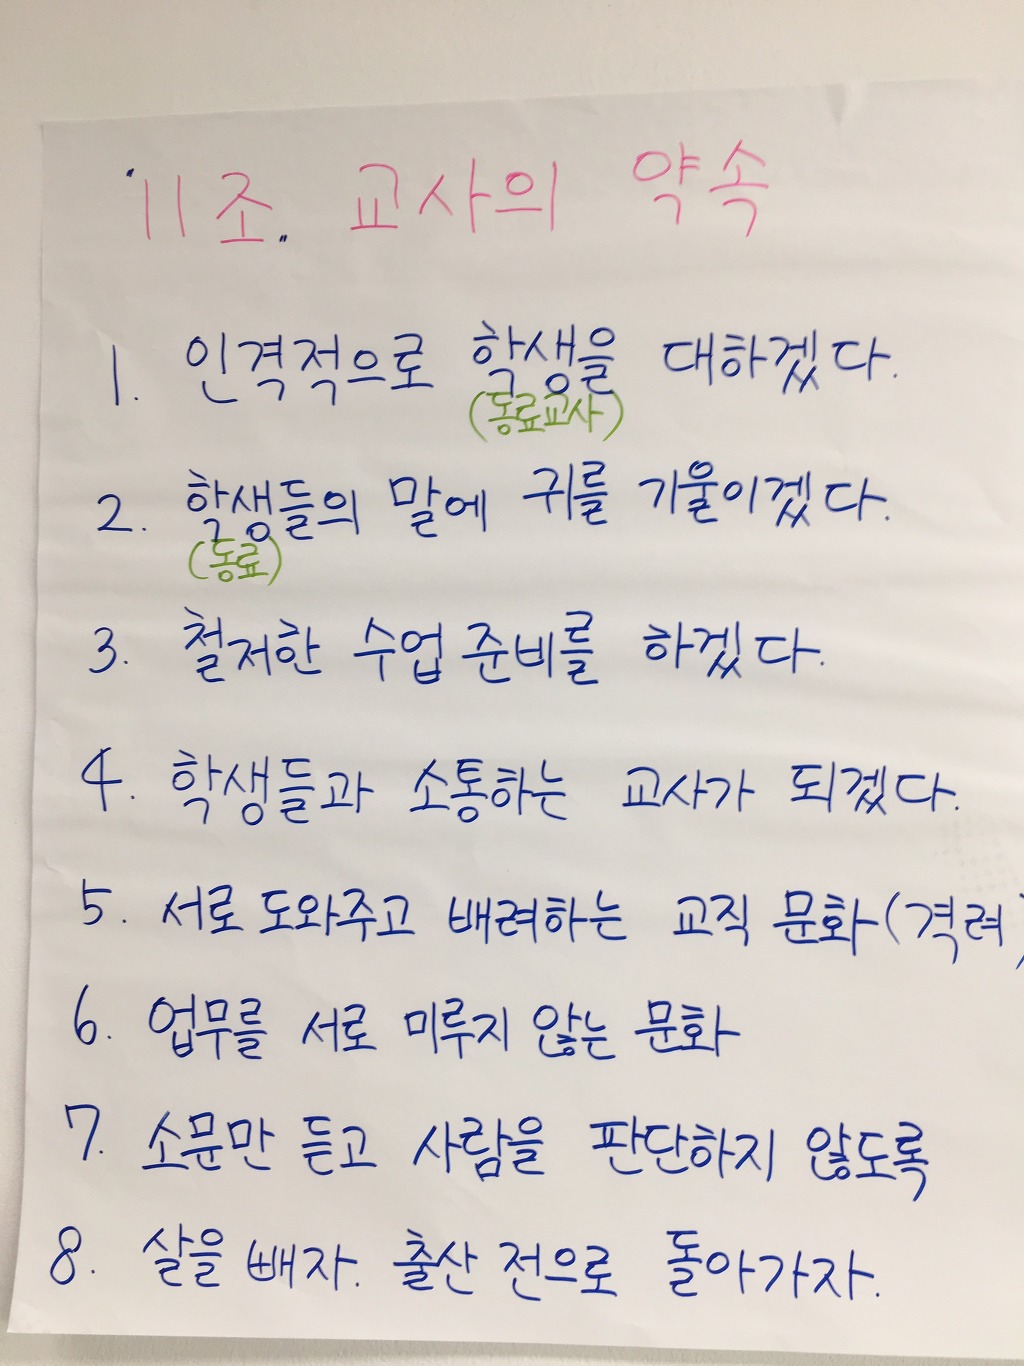 "11조." 교사의 약속
1. 인격적으로 학생을 대하겠다.
(동료교사)
2. 학생들의 말에 귀를 기울이겠다.
(동료)
3. 철저한 수업 준비를 하겠다.
4. 학생들과 소통하는 교사가 되겠다.
5. 서로 도와주고 배려하는 교직 문화(격려)
6. 업무를 서로 미루지 않는 문화
7. 소문만 듣고 사람을 판단하지 않도록
8. 살을 빼자. 출산 전으로 돌아가자.